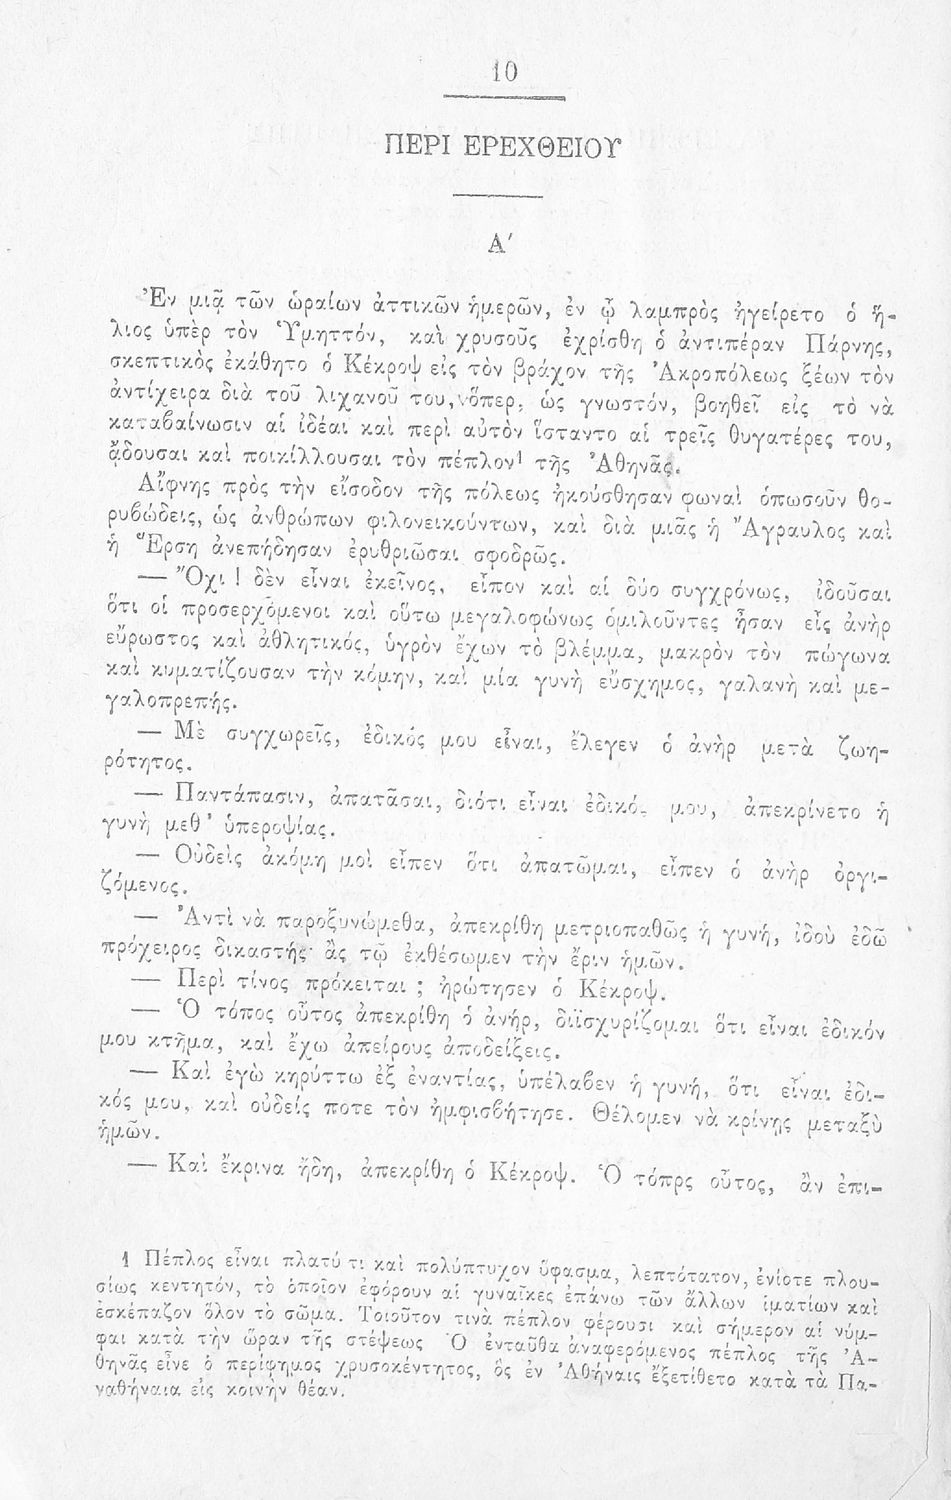 10
ΠΕΡΙ ΕΡΕΧΘΕΙΟΥ
Α΄
Ἐν μιᾷ τῶν ὡραίων ἀττικῶν ἡμερῶν, ἐν ᾧ λαμπρὸς ἠγείρετο ὁ ἥ-
λιος ὑπὲρ τὸν Ὑμηττόν, καὶ χρυσοῦς ἐχρίσθη ὁ ἀντιπέραν Πάρνης,
σκεπτικὸς ἐκάθητο ὁ Κέκροψ εἰς τὸν βράχον τῆς Ἀκροπόλεως ξέων τὸν
ἀντίχειρα διὰ τοῦ λιχανοῦ του, ὅπερ, ὡς γνωστόν, βοηθεῖ εἰς τὸ νὰ
καταβαίνωσιν αἱ ἰδέαι καὶ περὶ αὐτὸν ἵσταντο αἱ τρεῖς θυγατέρες του,
ᾄδουσαι καὶ ποικίλλουσαι τὸν πέπλον¹ τῆς Ἀθηνᾶς.
Αἴφνης πρὸς τὴν εἴσοδον τῆς πόλεως ἠκούσθησαν φωναὶ ὁπωσοῦν θο-
ρυβώδεις, ὡς ἀνθρώπων φιλονεικούντων, καὶ διὰ μιᾶς ἡ Ἄγραυλος καὶ
ἡ Ἕρση ἀνεπήδησαν ἐρυθριῶσαι σφοδρῶς.
— Ὄχι ! δὲν εἶναι ἐκεῖνος, εἶπον καὶ αἱ δύο συγχρόνως, ἰδοῦσαι
ὅτι οἱ προσερχόμενοι καὶ οὕτω μεγαλοφώνως ὁμιλοῦντες ἦσαν εἷς ἀνὴρ
εὔρωστος καὶ ἀθλητικός, ὑγρὸν ἔχων τὸ βλέμμα, μακρὸν τὸν πώγωνα
καὶ κυματίζουσαν τὴν κόμην, καὶ μία γυνὴ εὔσχημος, γαλανὴ καὶ με-
γαλοπρεπής.
— Μὲ συγχωρεῖς, ἐδικός μου εἶναι, ἔλεγεν ὁ ἀνὴρ μετὰ ζωη-
ρότητος.
— Παντάπασιν, ἀπατᾶσαι, διότι εἶναι ἐδικός μου, ἀπεκρίνετο ἡ
γυνὴ μεθ' ὑπεροψίας.
— Οὐδεὶς ἀκόμη μοὶ εἶπεν ὅτι ἀπατῶμαι, εἶπεν ὁ ἀνὴρ ὀργι-
ζόμενος.
— Ἀντὶ νὰ παροξυνώμεθα, ἀπεκρίθη μετριοπαθῶς ἡ γυνή, ἰδοὺ ἐδῶ
πρόχειρος δικαστής· ἂς τῷ ἐκθέσωμεν τὴν ἔριν ἡμῶν.
— Περὶ τίνος πρόκειται ; ἠρώτησεν ὁ Κέκροψ.
— Ὁ τόπος οὗτος ἀπεκρίθη ὁ ἀνήρ, διϊσχυρίζομαι ὅτι εἶναι ἐδικόν
μου κτῆμα, καὶ ἔχω ἀπείρους ἀποδείξεις.
— Καὶ ἐγὼ κηρύττω ἐξ ἐναντίας, ὑπέλαβεν ἡ γυνή, ὅτι εἶναι ἐδι-
κός μου, καὶ οὐδείς ποτε τὸν ἠμφισβήτησε. Θέλομεν νὰ κρίνῃς μεταξὺ
ἡμῶν.
— Καὶ ἔκρινα ἤδη, ἀπεκρίθη ὁ Κέκροψ. Ὁ τόπρς οὗτος, ἂν ἐπι-
1 Πέπλος εἶναι πλατύ τι καὶ πολύπτυχον ὕφασμα, λεπτότατον, ἐνίοτε πλου-
σίως κεντητόν, τὸ ὁποῖον ἐφόρουν αἱ γυναῖκες ἐπάνω τῶν ἄλλων ἱματίων καὶ
ἐσκέπαζον ὅλον τὸ σῶμα. Τοιοῦτον τινὰ πέπλον φέρουσι καὶ σήμερον αἱ νύμ-
φαι κατὰ τὴν ὥραν τῆς στέψεως Ὁ ἐνταῦθα ἀναφερόμενος πέπλος τῆς Ἀ-
θηνᾶς εἶνε ὁ περίφημος χρυσοκέντητος, ὃς ἐν Ἀθήναις ἐξετίθετο κατὰ τὰ Πα-
ναθήναια εἰς κοινὴν θέαν.